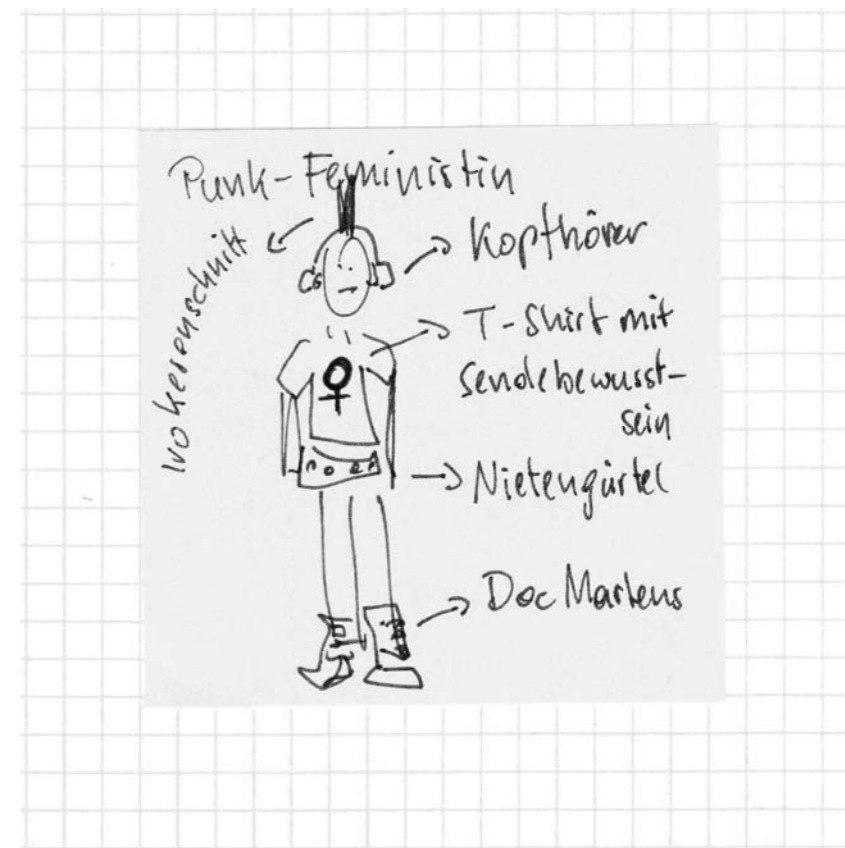 Punk-Feministin
Irokesenschnitt
Kopfhörer
T-Shirt mit
Sendebewusst-
sein
Nietengürtel
Doc Martens